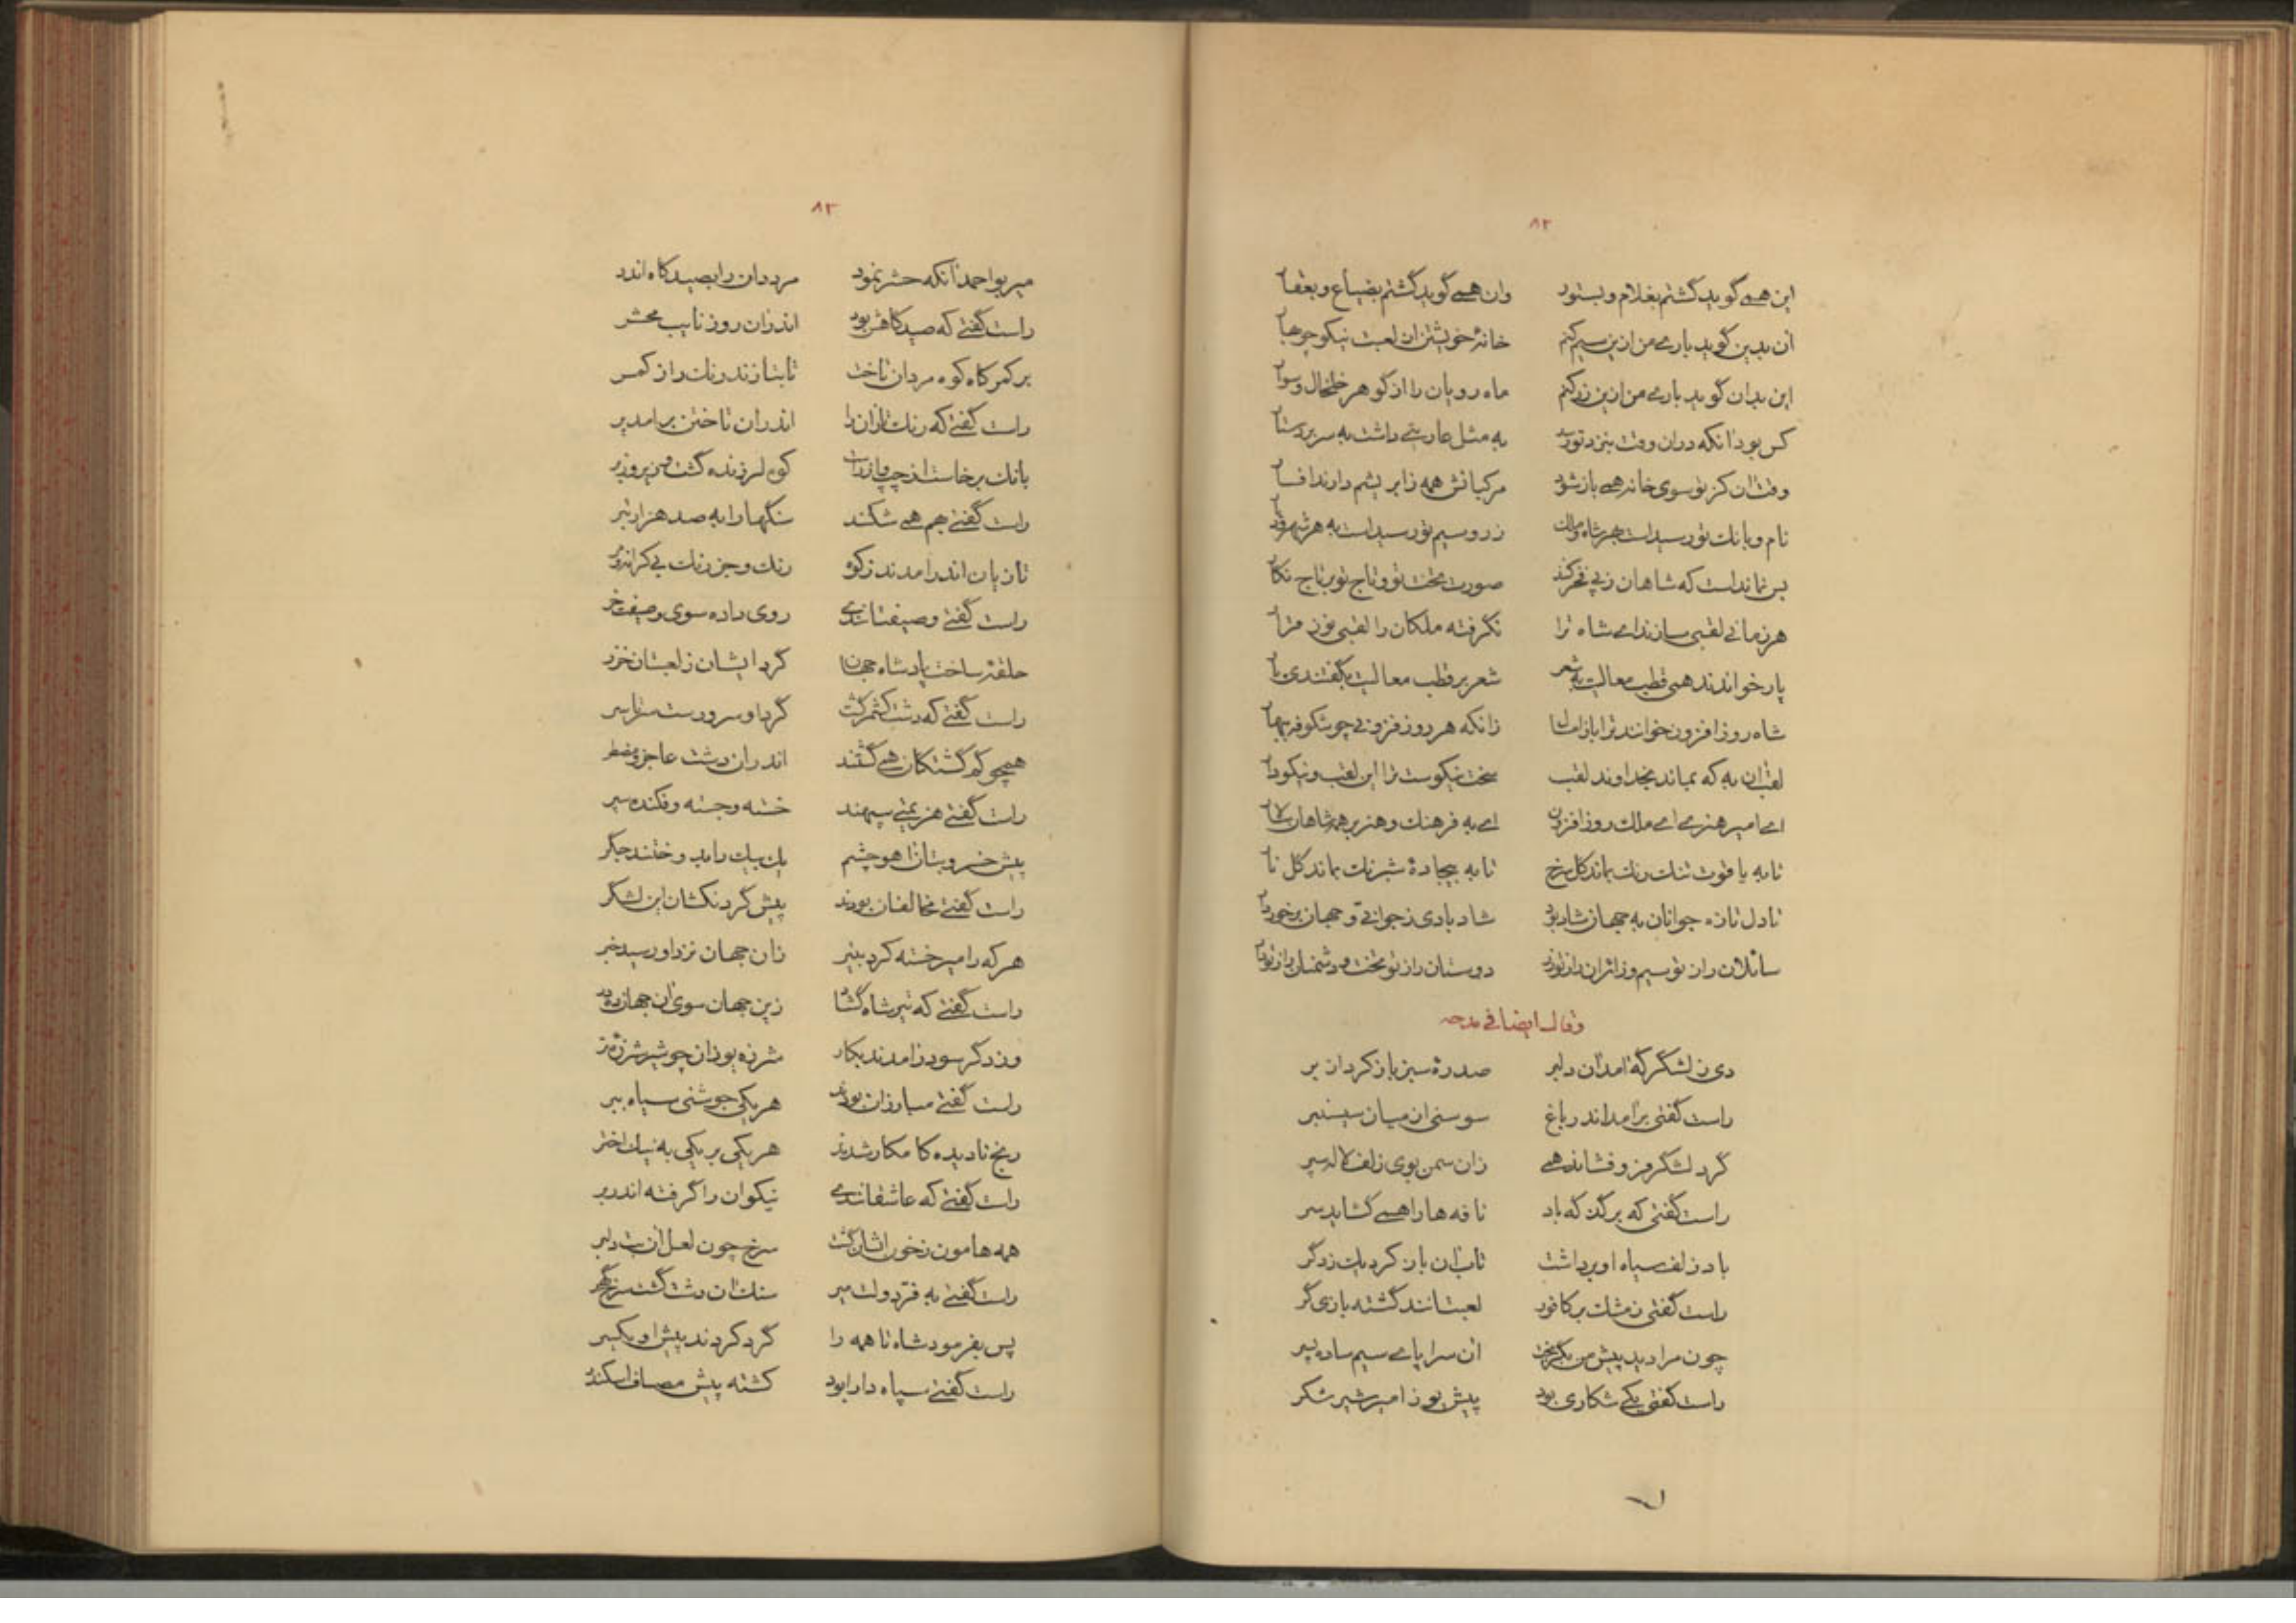 ۸۲
این همی گوید گشتم بغلام و بستور وان همی گوید گشتم بضیاع و بعقار
ان بدین گوید باری من ازین سیم کنم خانهٔ خویشتن ازان لعبت نیکو چو بهار
این بدان گوید باری من ازین زر کنم ماه رویان را از گوهر خلخال و سوار
کس بود انکه دران وقت بنزد تو رسد به مثل عاریتی داشت به سر بر دستار
وقت ان کز تو سوی خانه همی باز شود مرکبانش همه ز ابریشم دارند افسار
نام و بانک تو رسیداست بهر شاه و ملک زر و سیم تو رسیداست به هر شهر و دیار
بس نماند است که شاهان ز پی فخر کنند صورت تخت تو و تاج تو بر تاج نکار
هر زمانی لقبی سازند ای شاه ترا نگرفته ملکان را لقبی نوز قرار
پار خواندند همی قطب معالیت به شعر شعر بر قطب معالیت بگفتندی پار
شاه روز افزون خوانند ترا باز امسال زانکه هر روز فزونی چو شکوفه ببهار
لقب ان به که بماند بخداوند لقب سخت نیکوست ترا این لقب و نیکودار
ای امیر هنری ای ملک روز افزون ای به فرهنک و هنر بر همه شاهان سالار
تا به یاقوت تنک رنک بماند کل سرخ تا به بیجادهٔ شبرنک بماند کل نار
تا دل تازه جوانان به جهان شاد بود شاد بادی ز جوانی و جهان برخوردار
سائلان را ز تو سیم و زائران را ز تو زر دوستان را ز تو تخت و دشمنان را ز تو دار
وقال ایضا فی مدحه
دی ز لشگرگه امد ان دلبر صدرهٔ سبز باز کرد از بر
راست گفتی برامد اندر باغ سوسنی از میان سیسنبر
گرد لشگر فرو فشاند همی زان سمن بوی زلف لاله سپر
راست گفتی که بر گذرگه باد نافه ها را همی گشاید سر
باد زلف سیاه او برداشت تاب ان باز کرد یک ز دگر
راست گفتی ز مشک بر کافور لعبتانند گشته بازی گر
چون مرا دید پیش من بگریخت ان سراپای سیم ساده پسر
راست گفتی یکی شکاری بود پیش یوز امیر شیر شکر
۸۳
میر بواحمد انکه حشر نمود مر ددان را بصیدگاه اندر
راست گفتی که صیدگاهش بود اندران روز نایب محشر
بر کمرگاه کوه مردان تاخت تا بتازند رنک را ز کمر
راست گفتی که رنک تازان را اندران تاختن برامد پر
بانک برخاست از چپ و از راست کوه لرزنده گشت و زیر و زبر
راست گفتی بهم همی شکند سنگها را به صد هزار تبر
تازیان اندر امدند ز کوه رنک و جز رنک بی کرانه و مر
راست گفتی وصیفتانندی روی داده سوی وصیفت خر
حلقهٔ ساخت پادشاه جهان گرد ایشان ز لعبتان خزر
راست گفتی که دشت کشمر گشت گرد او سرو رست سرتاسر
همچو گم گشتکان همی گشتند اندران دشت عاجز و مضطر
راست گفتی هزیمتی سپهند خسته و جسته و فکنده سپر
پیش خسرو بتان اهو چشم یک بیک را بدوختند جگر
راست گفتی مخالفان بودند پیش گردنکشان این لشگر
هر که را میر خسته کرد به تیر زان جهان نزد او رسید خبر
راست گفتی که تیر شاه گشاد زین جهان سوی ان جهانش در
وز دگر سو درامدند بکار شرزه یوزان چو شیر شرزهٔ نر
راست گفتی مبارزان بودند هر یکی جوشنی سیاه ببر
رنج نادیده کامکار شدند هر یکی بر یکی به نیک اختر
راست گفتی که عاشقانندی نیکوان را گرفته اندر بر
همه هامون ز خون ایشان گشت سرخ چون لعل ان بت دلبر
راست گفتی به فر دولت میر سنک ان دشت گشت سرخ گهر
پس بفرمود شاه تا همه را گرد کردند پیش او یکسر
راست گفتی سپاه دارا بود کشته پیش مصاف اسکندر